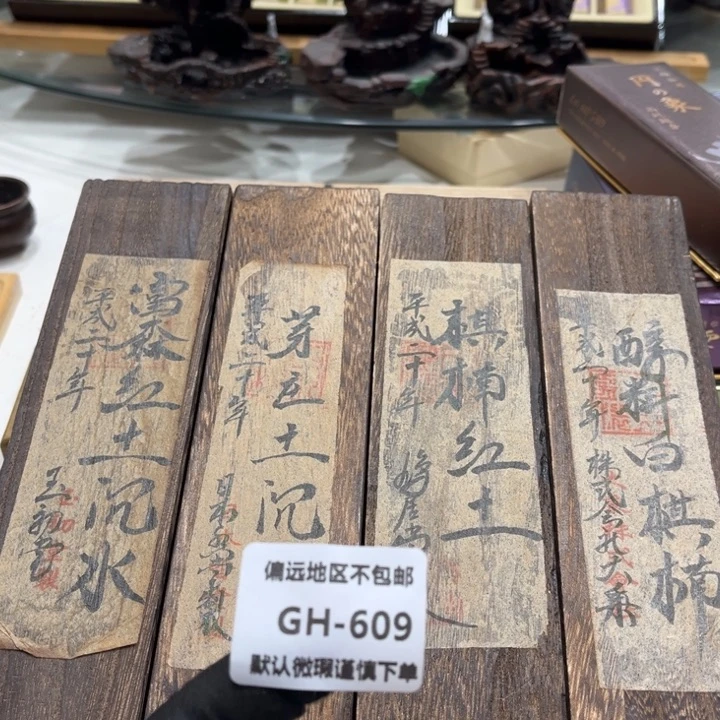 富森红土沉水
平成二十年
玉初堂
芽庄土沉
平成二十年
棋楠红土
平成二十年
鸠居堂
醇料白棋楠
平成二十年
株式会社大薫
偏远地区不包邮
GH-609
默认微瑕谨慎下单